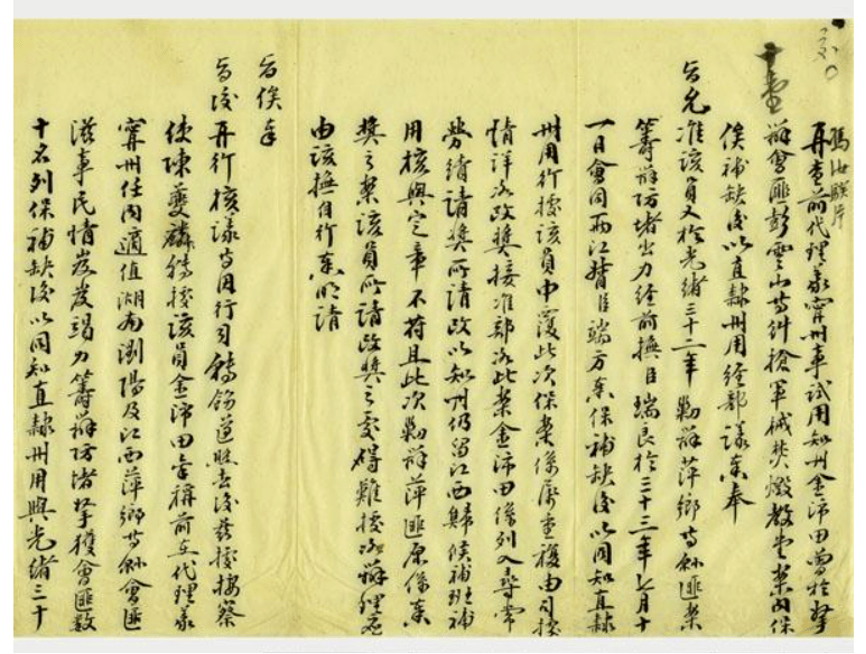 馮汝騤片
再查前代理義寧州事試用知州金沛田曾於拏
辦會匪彭雲山等糾搶軍械焚燬教堂案內保
俟補缺後以直隸州用經部議奏奉
旨允准該員又於光緒三十二年勦辦萍鄉等縣匪案
籌辦防堵出力經前撫臣瑞良於三十三年七月十
一日會同兩江督臣端方奏保補缺後以同知直隸
州用行據該員申覆此次保案係屬重複由司按
情詳咨改獎接准部咨此案金沛田係列入尋常
勞績請獎所請改以知州仍留江西歸候補班補
用核與定章不符且此次勦辦萍匪原係奏
獎之案該員所請改獎之處碍難據咨辦理應
由該撫自行奏明請
旨俟奉
旨後再行核議等因行司飭道照去後茲據按察
使陳夔麟轉據該員金沛田稟稱前在代理義
寧州任內適值湖南瀏陽及江西萍鄉等縣會匪
滋事民情岌岌竭力籌辦防堵拏獲會匪數
十名列保補缺後以同知直隸州用與光緒三十